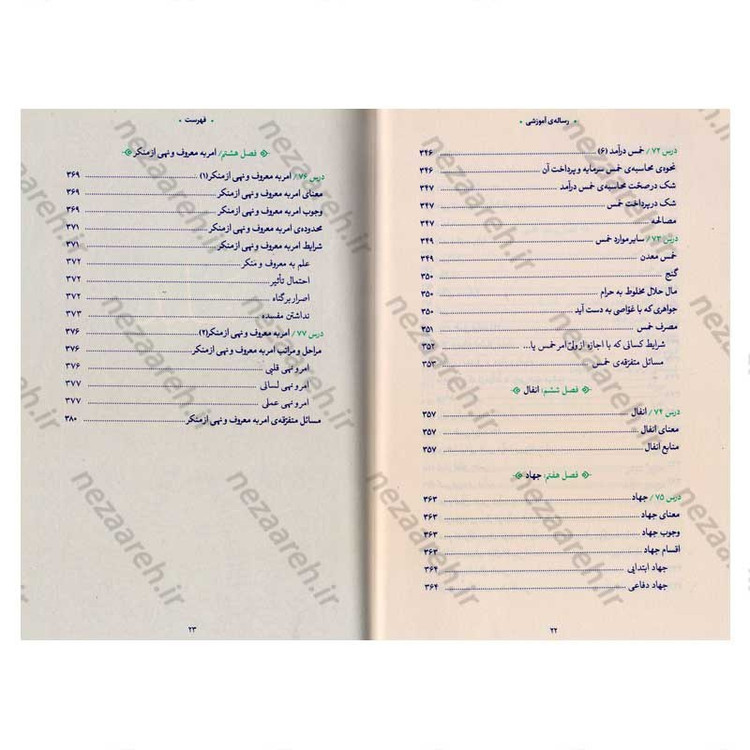 رساله‌ی آموزشی
درس ۷۲/ خمس درآمد (۶) ۳۴۶
نحوه‌ی محاسبه‌ی خمس سرمایه و پرداخت آن ۳۴۶
شک در صحّت محاسبه‌ی خمس درآمد ۳۴۷
شک در پرداخت خمس ۳۴۷
مصالحه ۳۴۷
درس ۷۳/ سایر موارد خمس ۳۴۹
خمس معدن ۳۴۹
گنج ۳۵۰
مال حلال مخلوط به حرام ۳۵۰
جواهری که با غوّاصی به دست آید ۳۵۰
مصرف خمس ۳۵۱
شرایط کسانی که با اجازه از ولیّ امر خمس یا... ۳۵۲
مسائل متفرّقه‌ی خمس ۳۵۳
فصل ششم: انفال
درس ۷۴/ انفال ۳۵۷
معنای انفال ۳۵۷
منابع انفال ۳۵۷
فصل هفتم: جهاد
درس ۷۵/ جهاد ۳۶۳
معنای جهاد ۳۶۳
وجوب جهاد ۳۶۳
اقسام جهاد ۳۶۳
جهاد ابتدایی ۳۶۴
جهاد دفاعی ۳۶۴
۲۲
فهرست
فصل هشتم/ امر به معروف و نهی از منکر
درس ۷۶/ امر به معروف و نهی از منکر (۱) ۳۶۹
معنای امر به معروف و نهی از منکر ۳۶۹
وجوب امر به معروف و نهی از منکر ۳۶۹
محدوده‌ی امر به معروف و نهی از منکر ۳۷۱
شرایط امر به معروف و نهی از منکر ۳۷۱
علم به معروف و منکر ۳۷۲
احتمال تأثیر ۳۷۲
اصرار بر گناه ۳۷۲
نداشتن مفسده ۳۷۳
درس ۷۷/ امر به معروف و نهی از منکر (۲) ۳۷۶
مراحل و مراتب امر به معروف و نهی از منکر ۳۷۶
امر و نهی قلبی ۳۷۶
امر و نهی لسانی ۳۷۷
امر و نهی عملی ۳۷۷
مسائل متفرّقه‌ی امر به معروف و نهی از منکر ۳۸۰
۲۳
nezaareh.ir